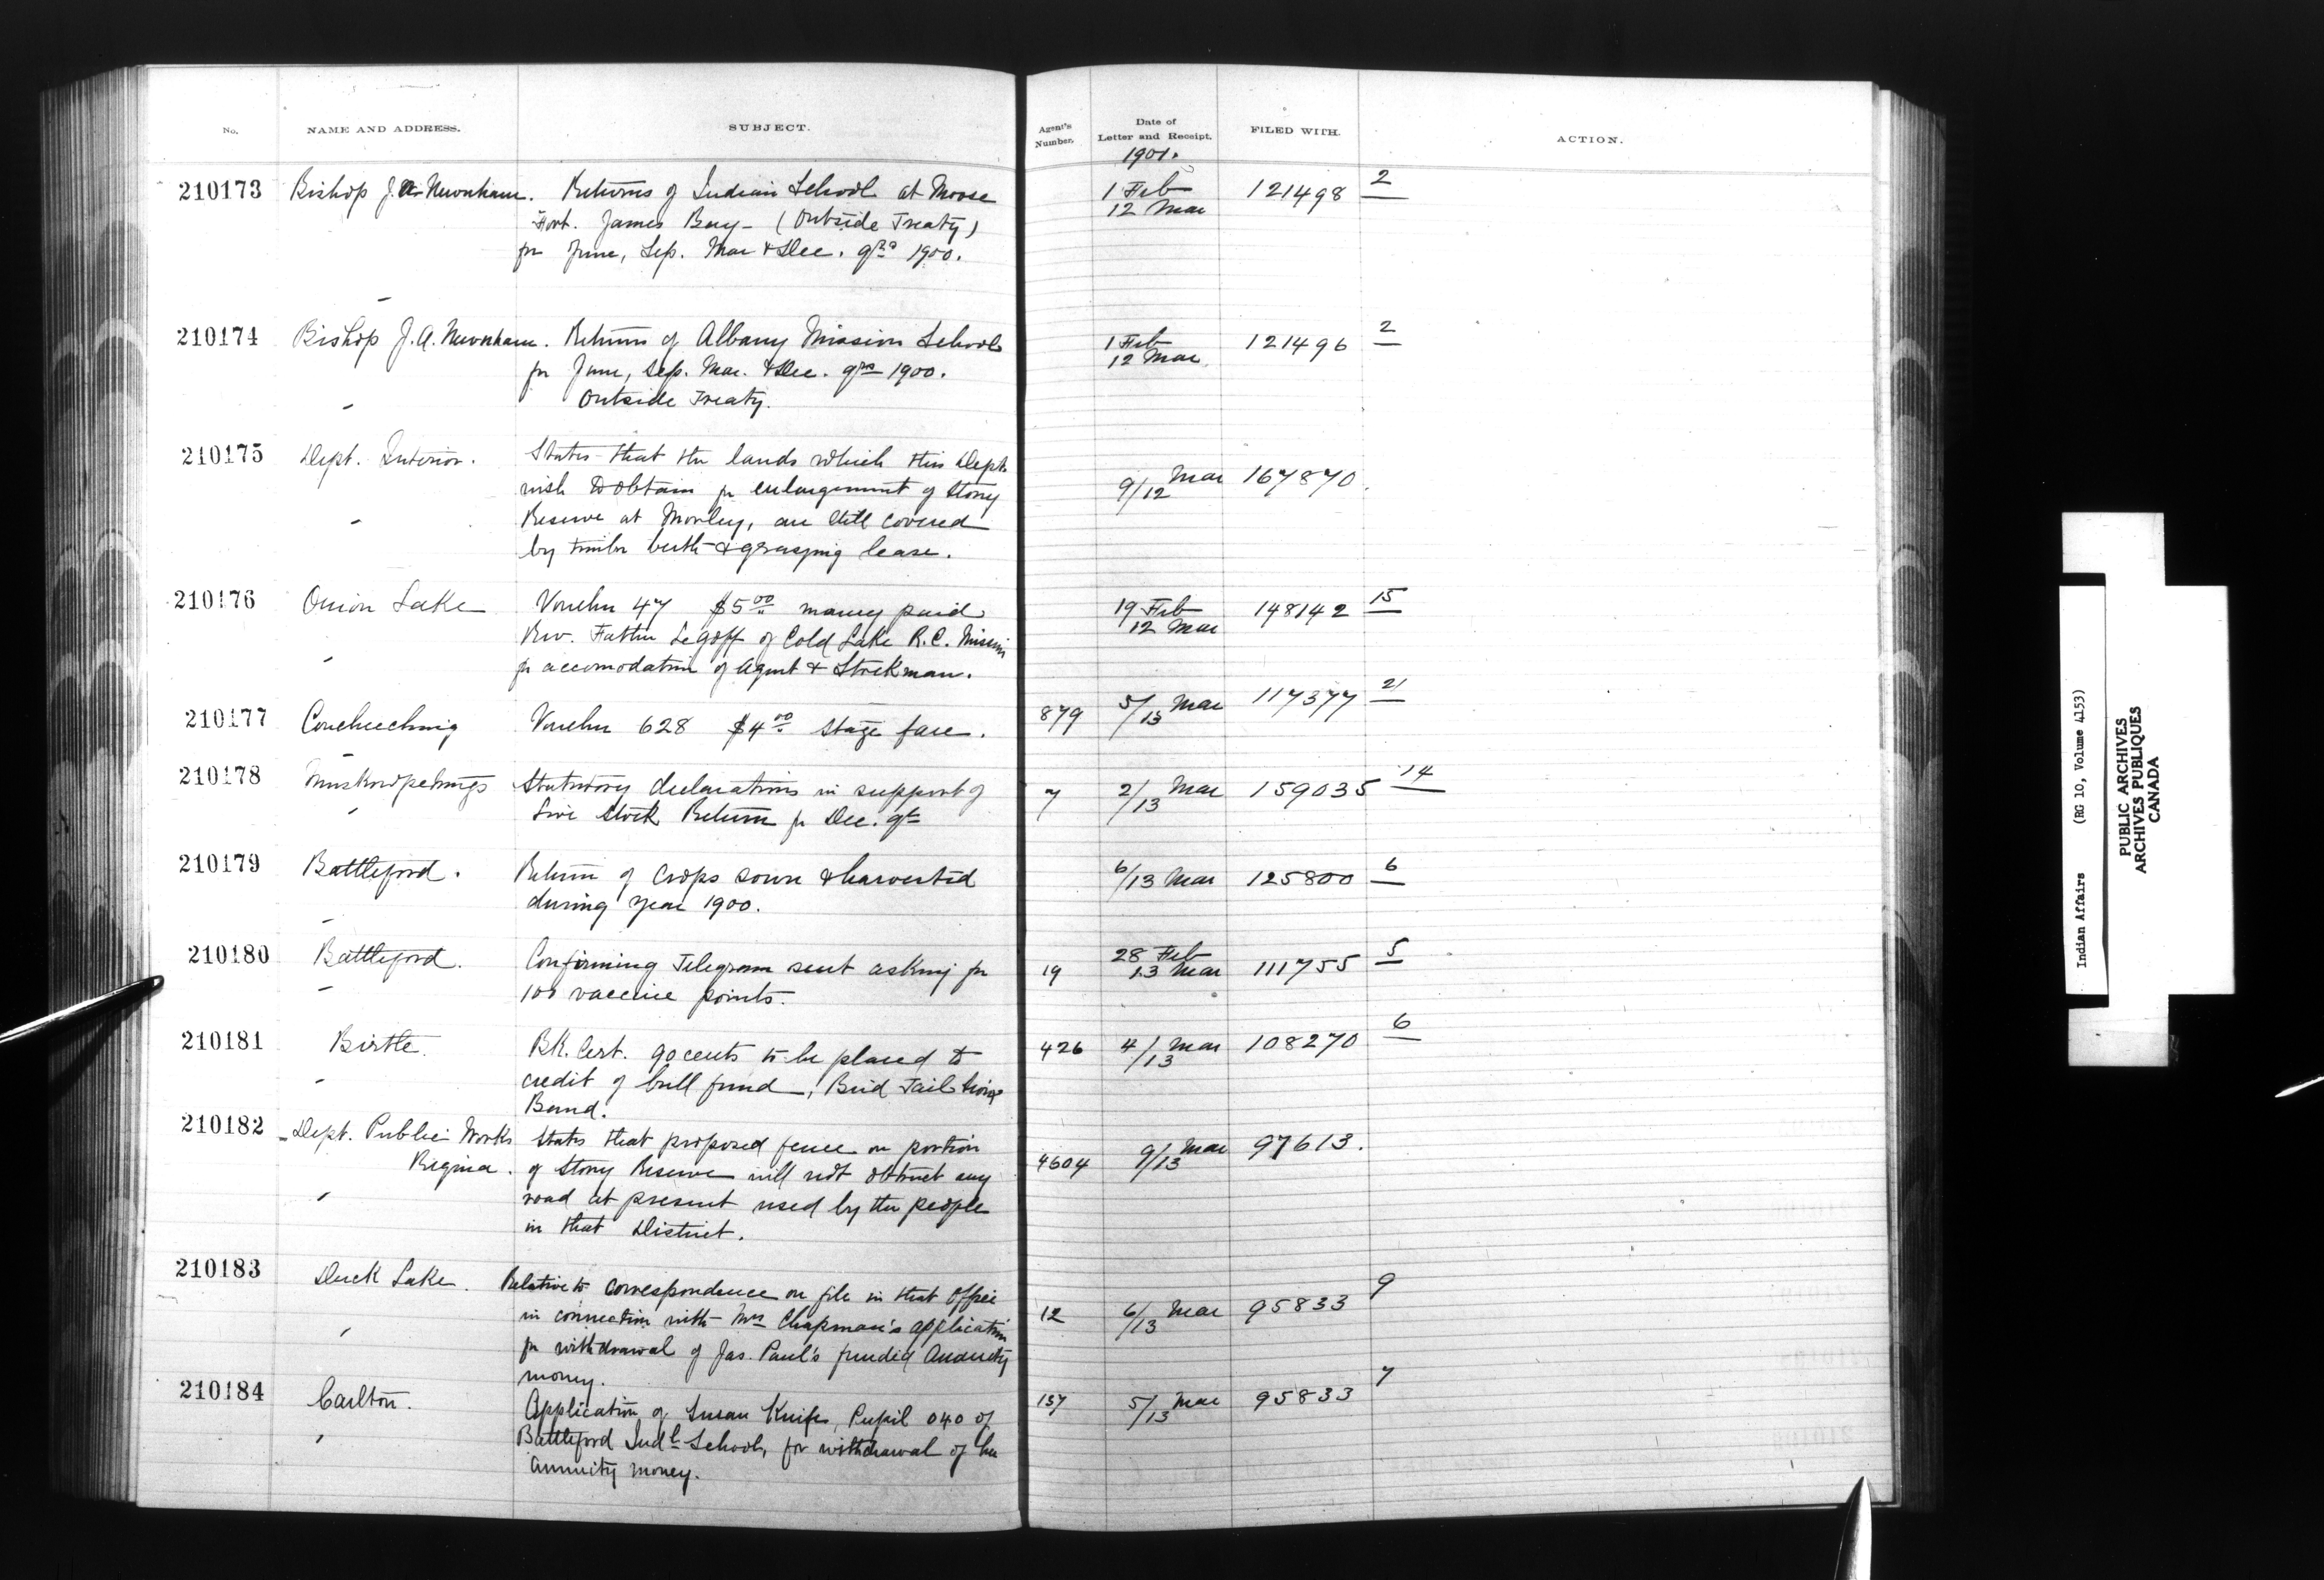 No. NAME AND ADDRESS. SUBJECT. Agent's Number. Date of Letter and Receipt. FILED WITH. ACTION.
1901.
210173 Bishop J. A. Newnham. Returns of Indian School at Moose 1 Feb 121498 2
Fort. James Bay - (Outside Treaty) 12 Mar
for June, Sep. Mar & Dec. qrs 1900.
210174 Bishop J. A. Newnham. Returns of Albany Mission School 1 Feb 121496 2
for June, Sep. Mar. & Dec. qrs 1900. 12 Mar
Outside Treaty.
210175 Dept. Interior. States that the lands which this Dept.
wish to obtain for enlargement of Stony 9/12 Mar 167870.
Reserve at Morley, are still covered
by timber berth & grasping lease.
210176 Onion Lake Voucher 47 $5.00 money paid 19 Feb 148142 15
Rev. Father Legoff of Cold Lake R.C. Mission 12 Mar
for accomodation of Agent & Stockman.
210177 Coucheeching Voucher 628 $4.00 stage fare. 879 5/13 Mar 117377 21
210178 Muskowpetungs Statutory declarations in support of 7 2/13 Mar 159035 14
Live Stock Return for Dec. qt
210179 Battleford. Return of crops sown & harvested 6/13 Mar 125800 6
during year 1900.
210180 Battleford. Confirming Telegram sent asking for 19 28 Feb 111755 5
100 vaccine points. 13 Mar
210181 Birtle. BK. Cert. 90 cents to be placed to 426 4/13 Mar 108270 6
credit of bull fund, Bird Tail Sioux
Band.
210182 Dept. Public Works States that proposed fence on portion 9/13 Mar 97613.
Regina. of Stony Reserve will not obstruct any 4604
road at present used by the people
in that District.
210183 Duck Lake. Relative to correspondence on file in that Office 9
in connection with Mrs Chapman's application 12 6/13 Mar 95833
for withdrawal of Jas. Paul's funded Annuity
money.
210184 Carlton. Application of Susan Knife, Pupil 040 of 137 5/13 Mar 95833 7
Battleford Indl School, for withdrawal of her
annuity money.
Indian Affairs (RG 10, Volume 4153)
PUBLIC ARCHIVES
ARCHIVES PUBLIQUES
CANADA